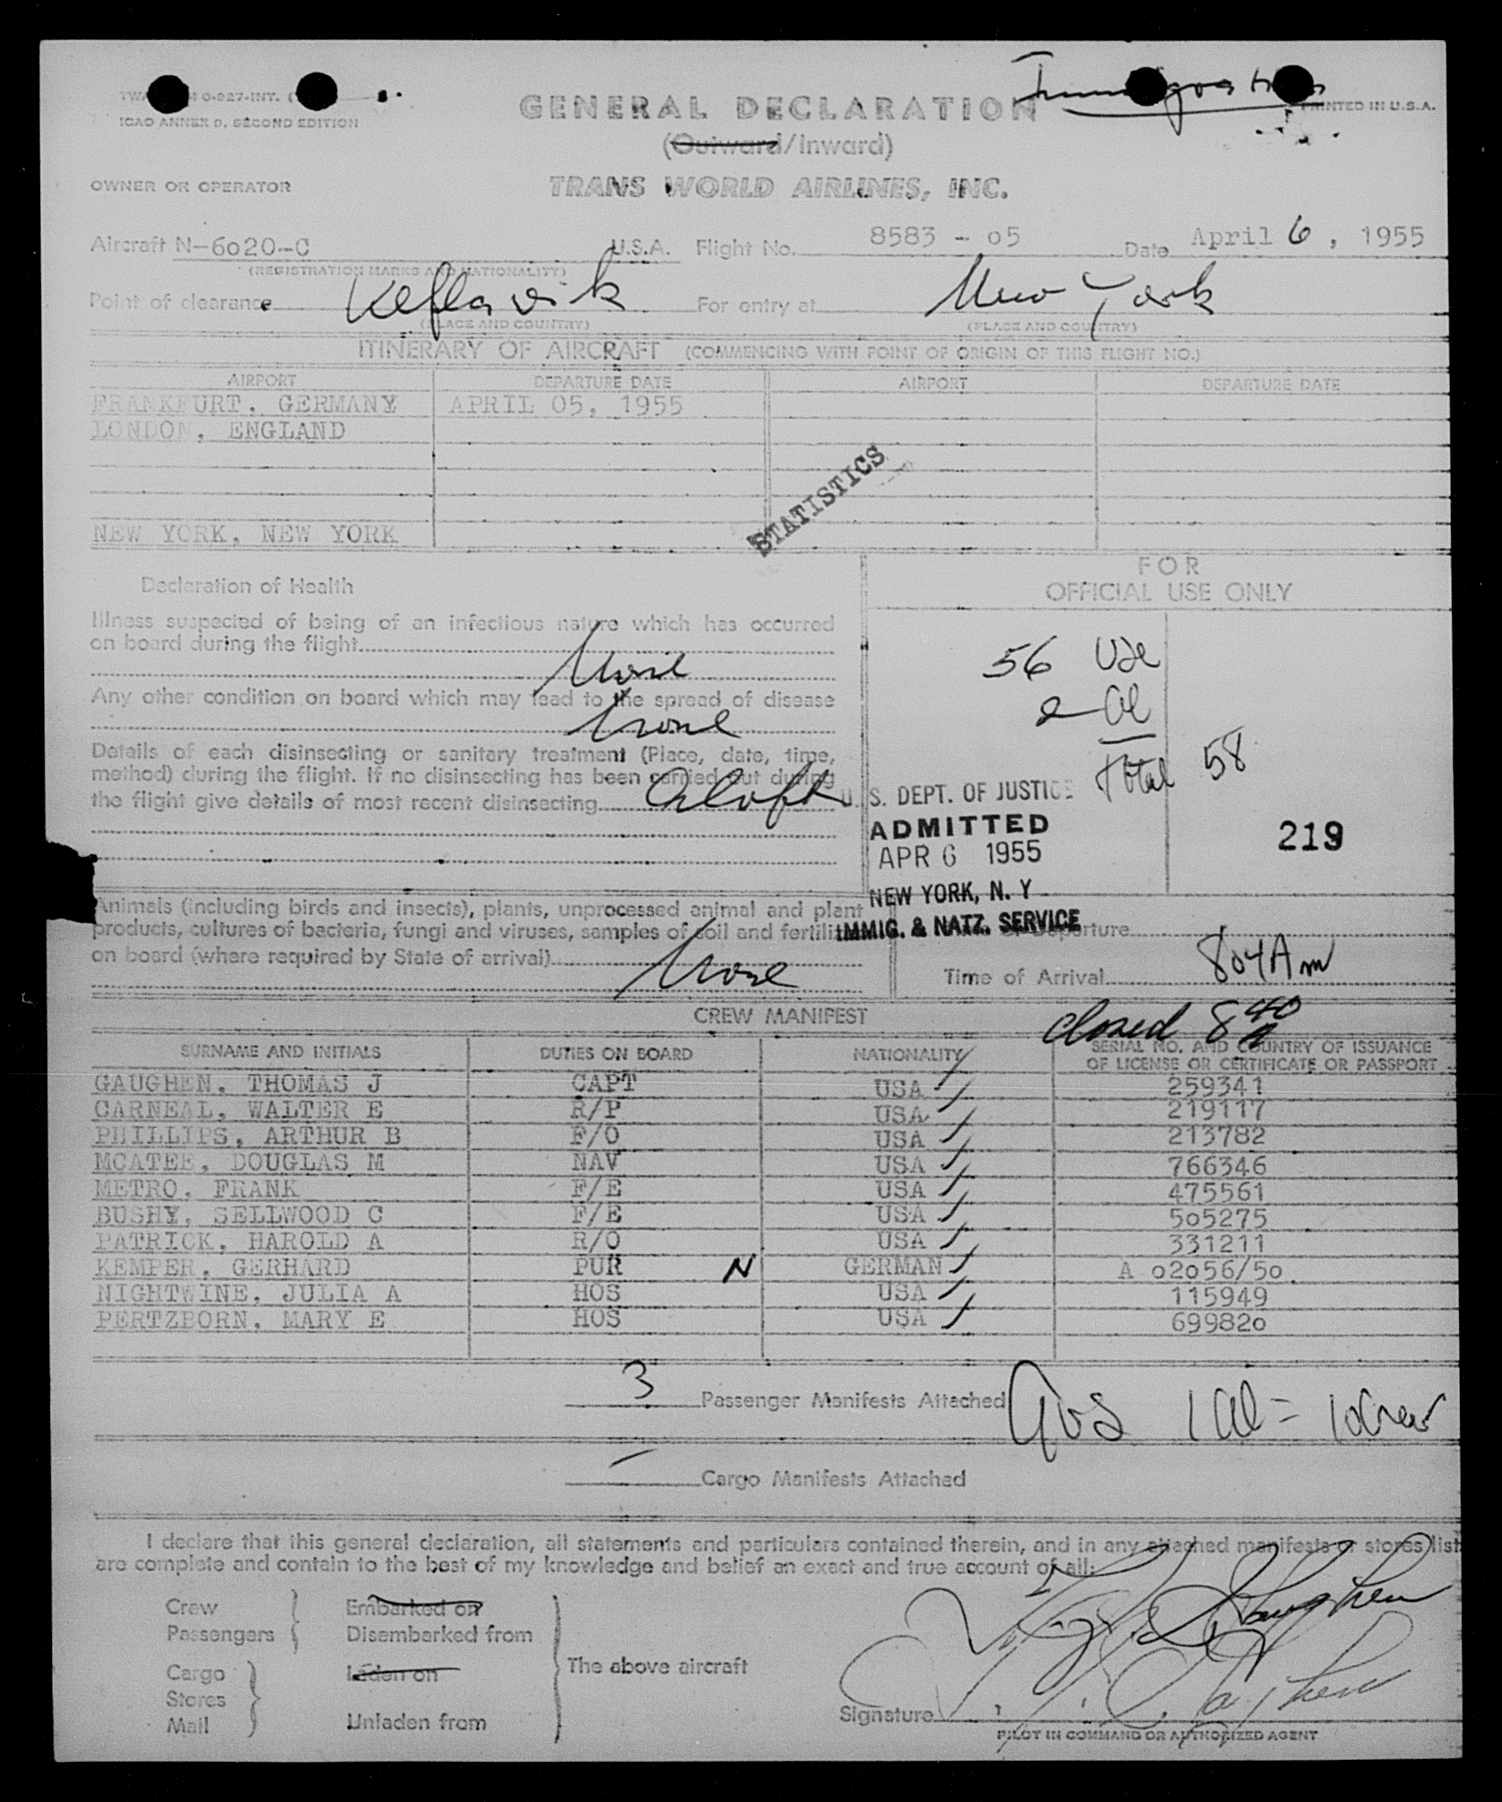 Immigration
ICAO ANNEX 9, SECOND EDITION
GENERAL DECLARATION
PRINTED IN U.S.A.
(Outward/Inward)
OWNER OR OPERATOR
TRANS WORLD AIRLINES, INC.
Aircraft N-6020-C U.S.A. Flight No. 8583 - 05 Date April 6, 1955
(REGISTRATION MARKS AND NATIONALITY)
Point of clearance Keflavik For entry at New York
(PLACE AND COUNTRY) (PLACE AND COUNTRY)
ITINERARY OF AIRCRAFT (COMMENCING WITH POINT OF ORIGIN OF THIS FLIGHT NO.)
AIRPORT DEPARTURE DATE AIRPORT DEPARTURE DATE
FRANKFURT, GERMANY APRIL 05, 1955
LONDON, ENGLAND
STATISTICS
NEW YORK, NEW YORK
FOR
OFFICIAL USE ONLY
Declaration of Health
Illness suspected of being of an infectious nature which has occurred
on board during the flight
None
Any other condition on board which may lead to the spread of disease
None
Details of each disinsecting or sanitary treatment (Place, date, time,
method) during the flight. If no disinsecting has been carried out during
the flight give details of most recent disinsecting Aloft
56 USC
2 Al
Total 58
U. S. DEPT. OF JUSTICE
ADMITTED
APR 6 1955
219
NEW YORK, N. Y
IMMIG. & NATZ. SERVICE
Animals (including birds and insects), plants, unprocessed animal and plant
products, cultures of bacteria, fungi and viruses, samples of soil and fertilizer
on board (where required by State of arrival)
None
Departure
Time of Arrival 804 Am
closed 840 A
CREW MANIFEST
SURNAME AND INITIALS DUTIES ON BOARD NATIONALITY SERIAL NO. AND COUNTRY OF ISSUANCE
OF LICENSE OR CERTIFICATE OR PASSPORT
GAUGHEN, THOMAS J CAPT USA 259341
CARNEAL, WALTER E R/P USA 219117
PHILLIPS, ARTHUR B F/O USA 213782
MCATEE, DOUGLAS M NAV USA 766346
METRO, FRANK F/E USA 475561
BUSHY, SELLWOOD C F/E USA 505275
PATRICK, HAROLD A R/O USA 331211
KEMPER, GERHARD PUR N GERMAN A 02056/50
NIGHTWINE, JULIA A HOS USA 115949
PERTZBORN, MARY E HOS USA 699820
3 Passenger Manifests Attached
9 US 1 Al = 10 Crew
— Cargo Manifests Attached
I declare that this general declaration, all statements and particulars contained therein, and in any attached manifests or stores list
are complete and contain to the best of my knowledge and belief an exact and true account of all:
Crew Embarked on
Passengers Disembarked from
The above aircraft
Cargo Laden on
Stores
Mail Unladen from
Signature T. J. Gaughen
PILOT IN COMMAND OR AUTHORIZED AGENT